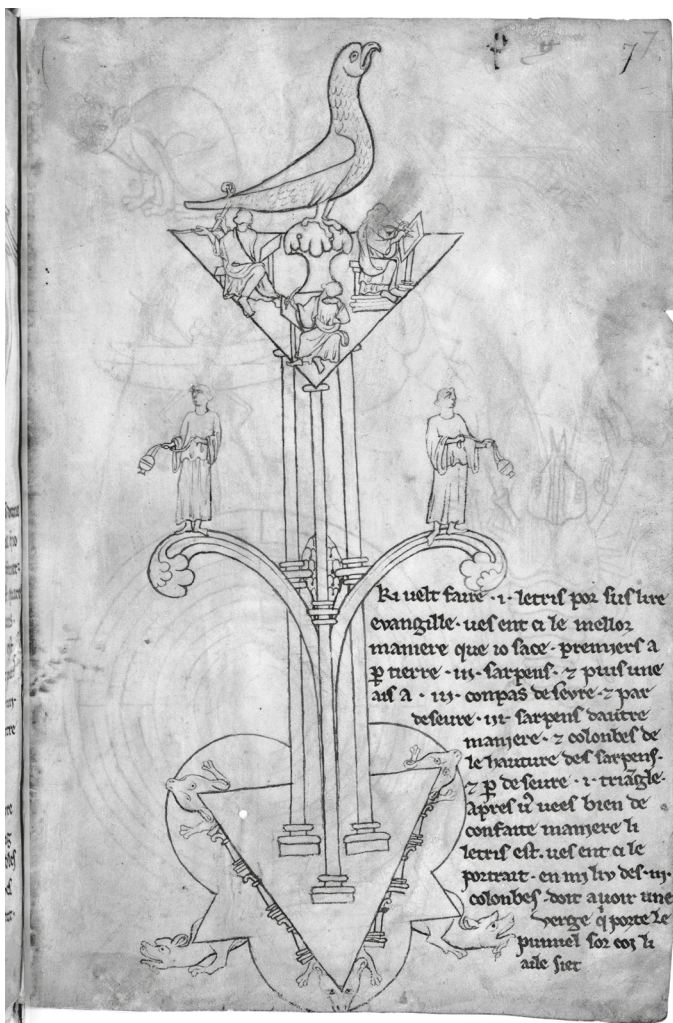 7 7
Ki velt faire · i · letris por sus lire
evangille · ves ent ci le mellor
maniere que io sace · premiers a
p tierre · iij · sarpens · ⁊ puis une
ais a · iij · conpas deseure · ⁊ par
deseure · iij · sarpens dautre
maniere · ⁊ colonbes de
le hauture des sarpens ·
⁊ p deseure · i · triangle ·
Apres u vees bien de
confaite maniere li
letris est · ves ent ci le
portrait · en mi liu des · iij ·
colonbes · doit avoir une
verge q porte le
pumiel sor coi li
aile siet